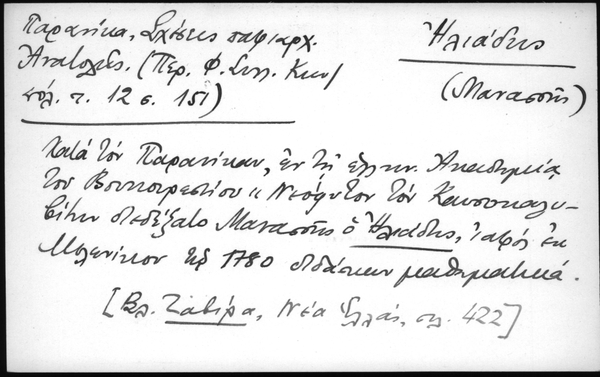 Παρανίκα, Σχέσεις πατριαρχ.
Ἀνατολῆς. (Περ. Φ. Συλ. Κων/
πόλ. τ. 12 σ. 151)
Ἠλιάδης
(Μανασσῆς)
Κατὰ τὸν Παρανίκαν, ἐν τῇ ἑλλην. Ἀκαδημίᾳ
τοῦ Βουκουρεστίου " Νεόφυτον τὸν Καυσοκαλυ-
βίτην διεδέξατο Μανασσῆς ὁ Ἠλιάδης, ἰατρὸς ἐκ
Μελενίκου τῷ 1780 διδάσκων μαθηματικά.
[Βλ. Ζαβίρα, Νέα Ἑλλάς, σελ. 422]